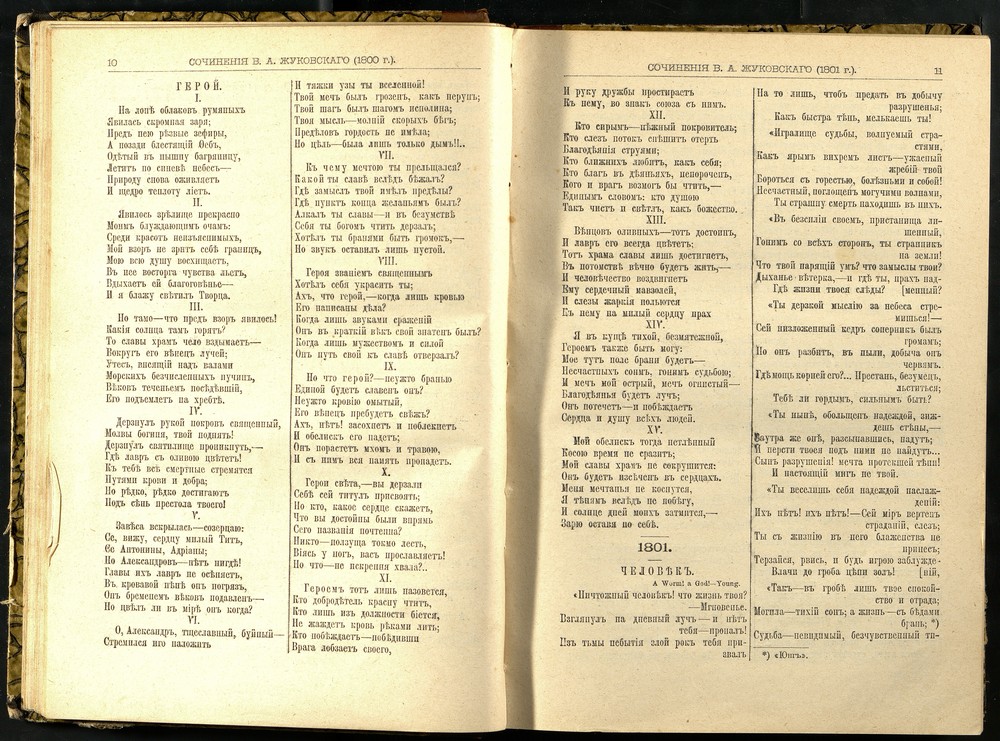 10
СОЧИНЕНІЯ В. А. ЖУКОВСКАГО (1800 г.).
ГЕРОЙ.
I.
На лонѣ облаковъ румяныхъ
Явилась скромная заря;
Предъ нею рѣзвые зефиры,
А позади блестящій Ѳебъ,
Одѣтый въ пышну багряницу,
Летитъ по синевѣ небесъ—
Природу снова оживляетъ
И щедро теплоту ліетъ.
II.
Явилось зрѣлище прекрасно
Моимъ блуждающимъ очамъ:
Среди красотъ неизъяснимыхъ,
Мой взоръ не зритъ себѣ границъ,
Мою всю душу восхищаетъ,
Въ нее восторга чувства льетъ,
Вдыхаетъ ей благоговѣнье—
И я блажу свѣтилъ Творца.
III.
Но тамо—что предъ взоръ явилось!
Какія солнца тамъ горятъ?
То славы храмъ чело вздымаетъ—
Вокругъ его вѣнецъ лучей;
Утесъ, висящій надъ валами
Морскихъ безчисленныхъ пучинъ,
Вѣковъ теченьемъ посѣдѣвшій,
Его подъемлетъ на хребтѣ.
IV.
Дерзнулъ рукой покровъ священный,
Молвы богиня, твой поднять!
Дерзнулъ святилище проникнуть,—
Гдѣ лавръ съ оливою цвѣтетъ!
Къ тебѣ всѣ смертные стремятся
Путями крови и добра;
Но рѣдко, рѣдко достигаютъ
Подъ сѣнь престола твоего!
V.
Завѣса вскрылась—созерцаю:
Се, вижу, сердцу милый Титъ,
Се Антонины, Адріаны;
Но Александровъ—нѣтъ нигдѣ!
Главы ихъ лавръ не осѣняетъ,
Въ кровавой пѣнѣ онъ погрязъ,
Онъ бременемъ вѣковъ подавленъ—
Но цвѣлъ ли въ мірѣ онъ когда?
VI.
О, Александръ, тщеславный, буйный—
Стремился иго наложить
И тяжки узы ты вселенной!
Твой мечъ былъ грозенъ, какъ перунъ;
Твой шагъ былъ шагомъ исполина;
Твоя мысль—молній скорыхъ бѣгъ;
Предѣловъ гордость не имѣла;
Но цѣль—была лишь только дымъ!!..
VII.
Къ чему мечтою ты прельщался?
Какой ты славѣ вслѣдъ бѣжалъ?
Гдѣ замыслъ твой имѣлъ предѣлы?
Гдѣ пунктъ конца желаньямъ былъ?
Алкалъ ты славы—и въ безумствѣ
Себя ты богомъ чтить дерзалъ;
Хотѣлъ ты бранями быть громокъ,—
Но звукъ оставилъ лишь пустой.
VIII.
Героя званіемъ священнымъ
Хотѣлъ себя украсить ты;
Ахъ, что герой,—когда лишь кровью
Его написаны дѣла?
Когда лишь звуками сраженій
Онъ въ краткій вѣкъ свой знатенъ былъ?
Когда лишь мужествомъ и силой
Онъ путь свой къ славѣ отверзалъ?
IX.
Но что герой?—неужто бранью
Единой будетъ славенъ онъ?
Неужто кровію омытый,
Его вѣнецъ пребудетъ свѣжъ?
Ахъ, нѣтъ! засохнетъ и поблекнетъ
И обелискъ его падетъ;
Онъ порастетъ мхомъ и травою,
И съ нимъ вся память пропадетъ.
X.
Герои свѣта,—вы дерзали
Себѣ сей титулъ присвоять;
Но кто, какое сердце скажетъ,
Что вы достойны были впрямь
Сего названія почтенна?
Никто—ползуща токмо лесть,
Віясь у ногъ, васъ прославляетъ!
Но что—не искрення хвала?..
XI.
Героемъ тотъ лишь назовется,
Кто добродѣтель красну чтитъ,
Кто лишь изъ должности біется,
Не жаждетъ кровь рѣками лить;
Кто побѣждаетъ—побѣдивши
Врага лобзаетъ своего,
СОЧИНЕНІЯ В. А. ЖУКОВСКАГО (1801 г.).
11
И руку дружбы простираетъ
Къ нему, во знакъ союза съ нимъ.
XII.
Кто сирымъ—нѣжный покровитель;
Кто слезъ потокъ спѣшитъ отерть
Благодѣянія струями;
Кто ближнихъ любитъ, какъ себя;
Кто благъ въ дѣяньяхъ, непороченъ,
Кого и врагъ возмогъ бы чтить,—
Единымъ словомъ: кто душою
Такъ чистъ и свѣтлъ, какъ божество.
XIII.
Вѣнцовъ оливныхъ—тотъ достоинъ,
И лавръ его всегда цвѣтетъ;
Тотъ храма славы лишь достигнетъ,
Въ потомствѣ вѣчно будетъ жить,—
И человѣчество воздвигнетъ
Ему сердечный мавзолей,
И слезы жаркія польются
Къ нему на милый сердцу прах
XIV.
Я въ кущѣ тихой, безмятежной,
Героемъ также быть могу:
Мое тутъ поле брани будетъ—
Несчастныхъ сонмъ, гонимъ судьбою;
И мечъ мой острый, мечъ огнистый—
Благодѣянья будетъ лучъ;
Онъ потечетъ—и побѣждаетъ
Сердца и душу всѣхъ людей.
XV.
Мой обелискъ тогда нетлѣнный
Косою время не сразитъ;
Мой славы храмъ не сокрушится:
Онъ будетъ изсѣченъ въ сердцахъ.
Меня мечтанья не коснутся,
Я тѣнямъ вслѣдъ не побѣгу,
И солнце дней моихъ затмится,—
Зарю оставя по себѣ.
1801.
ЧЕЛОВѢКЪ.
A Worm! a God!—Young.
«Ничтожный человѣкъ! что жизнь твоя?
—Мгновенье.
Взглянулъ на дневный лучъ—и нѣтъ
тебя—пропалъ!
Изъ тьмы небытія злой рокъ тебя при-
звалъ
На то лишь, чтобъ предать въ добычу
разрушенья;
Какъ быстра тѣнь, мелькаешь ты!
«Игралище судьбы, волнуемый стра-
стями,
Какъ ярымъ вихремъ листъ—ужасный
жребій твой
Бороться съ горестью, болѣзньми и собой!
Несчастный, поглощенъ могучими волнами,
Ты страшну смерть находишь въ нихъ.
«Въ безсиліи своемъ, пристанища ли-
шенный,
Гонимъ со всѣхъ сторонъ, ты странникъ
на земли!
Что твой парящій умъ? что замыслы твои?
Дыханье вѣтерка,—и гдѣ ты, прахъ над-
Гдѣ жизни твоея слѣды? [менный?
«Ты дерзкой мыслію за небеса стре-
мишься!—
Сей низложенный кедръ соперникъ былъ
громамъ;
Но онъ разбитъ, въ пыли, добыча онъ
червямъ.
Гдѣ мощь корней его?... Престань, безумецъ,
льститься;
Тебѣ ли гордымъ, сильнымъ быть?
«Ты нынѣ, обольщенъ надеждой, зиж-
дешь стѣны,—
Заутра же онѣ, разсыпавшись, падутъ;
И персти твоея подъ ними не найдутъ...
Сынъ разрушенія! мечта протекшей тѣни!
И настоящій мигъ не твой.
«Ты веселишь себя надеждой наслаж-
деній:
Ихъ нѣтъ! ихъ нѣтъ!—Сей міръ вертепъ
страданій, слезъ;
Ты съ жизнію въ него блаженства не
принесъ;
Терзайся, рвись, и будь игрою заблужде-
Влачи до гроба цѣпи золъ! [ній,
«Такъ—въ гробѣ лишь твое спокой-
ство и отрада;
Могила—тихій сонъ; а жизнь—съ бѣдами
брань; *)
Судьба—невидимый, безчувственный ти-
*) «Юнгъ».